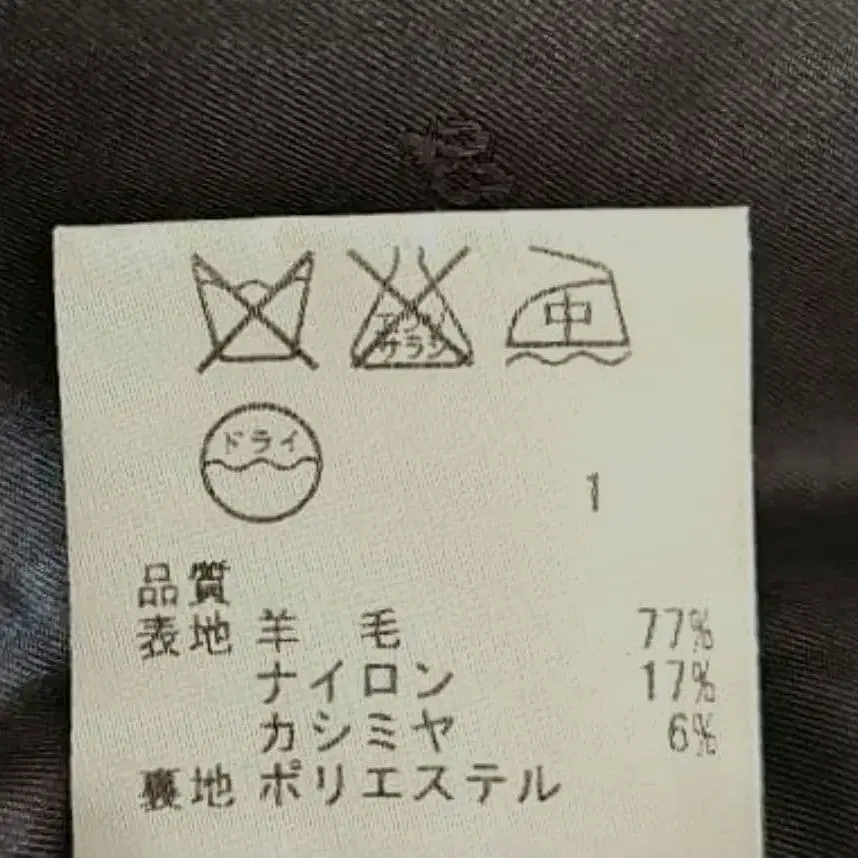 エンソ
サラシ
中
ドライ
1
品質
表地 羊 毛 77%
ナイロン 17%
カシミヤ 6%
裏地 ポリエステル